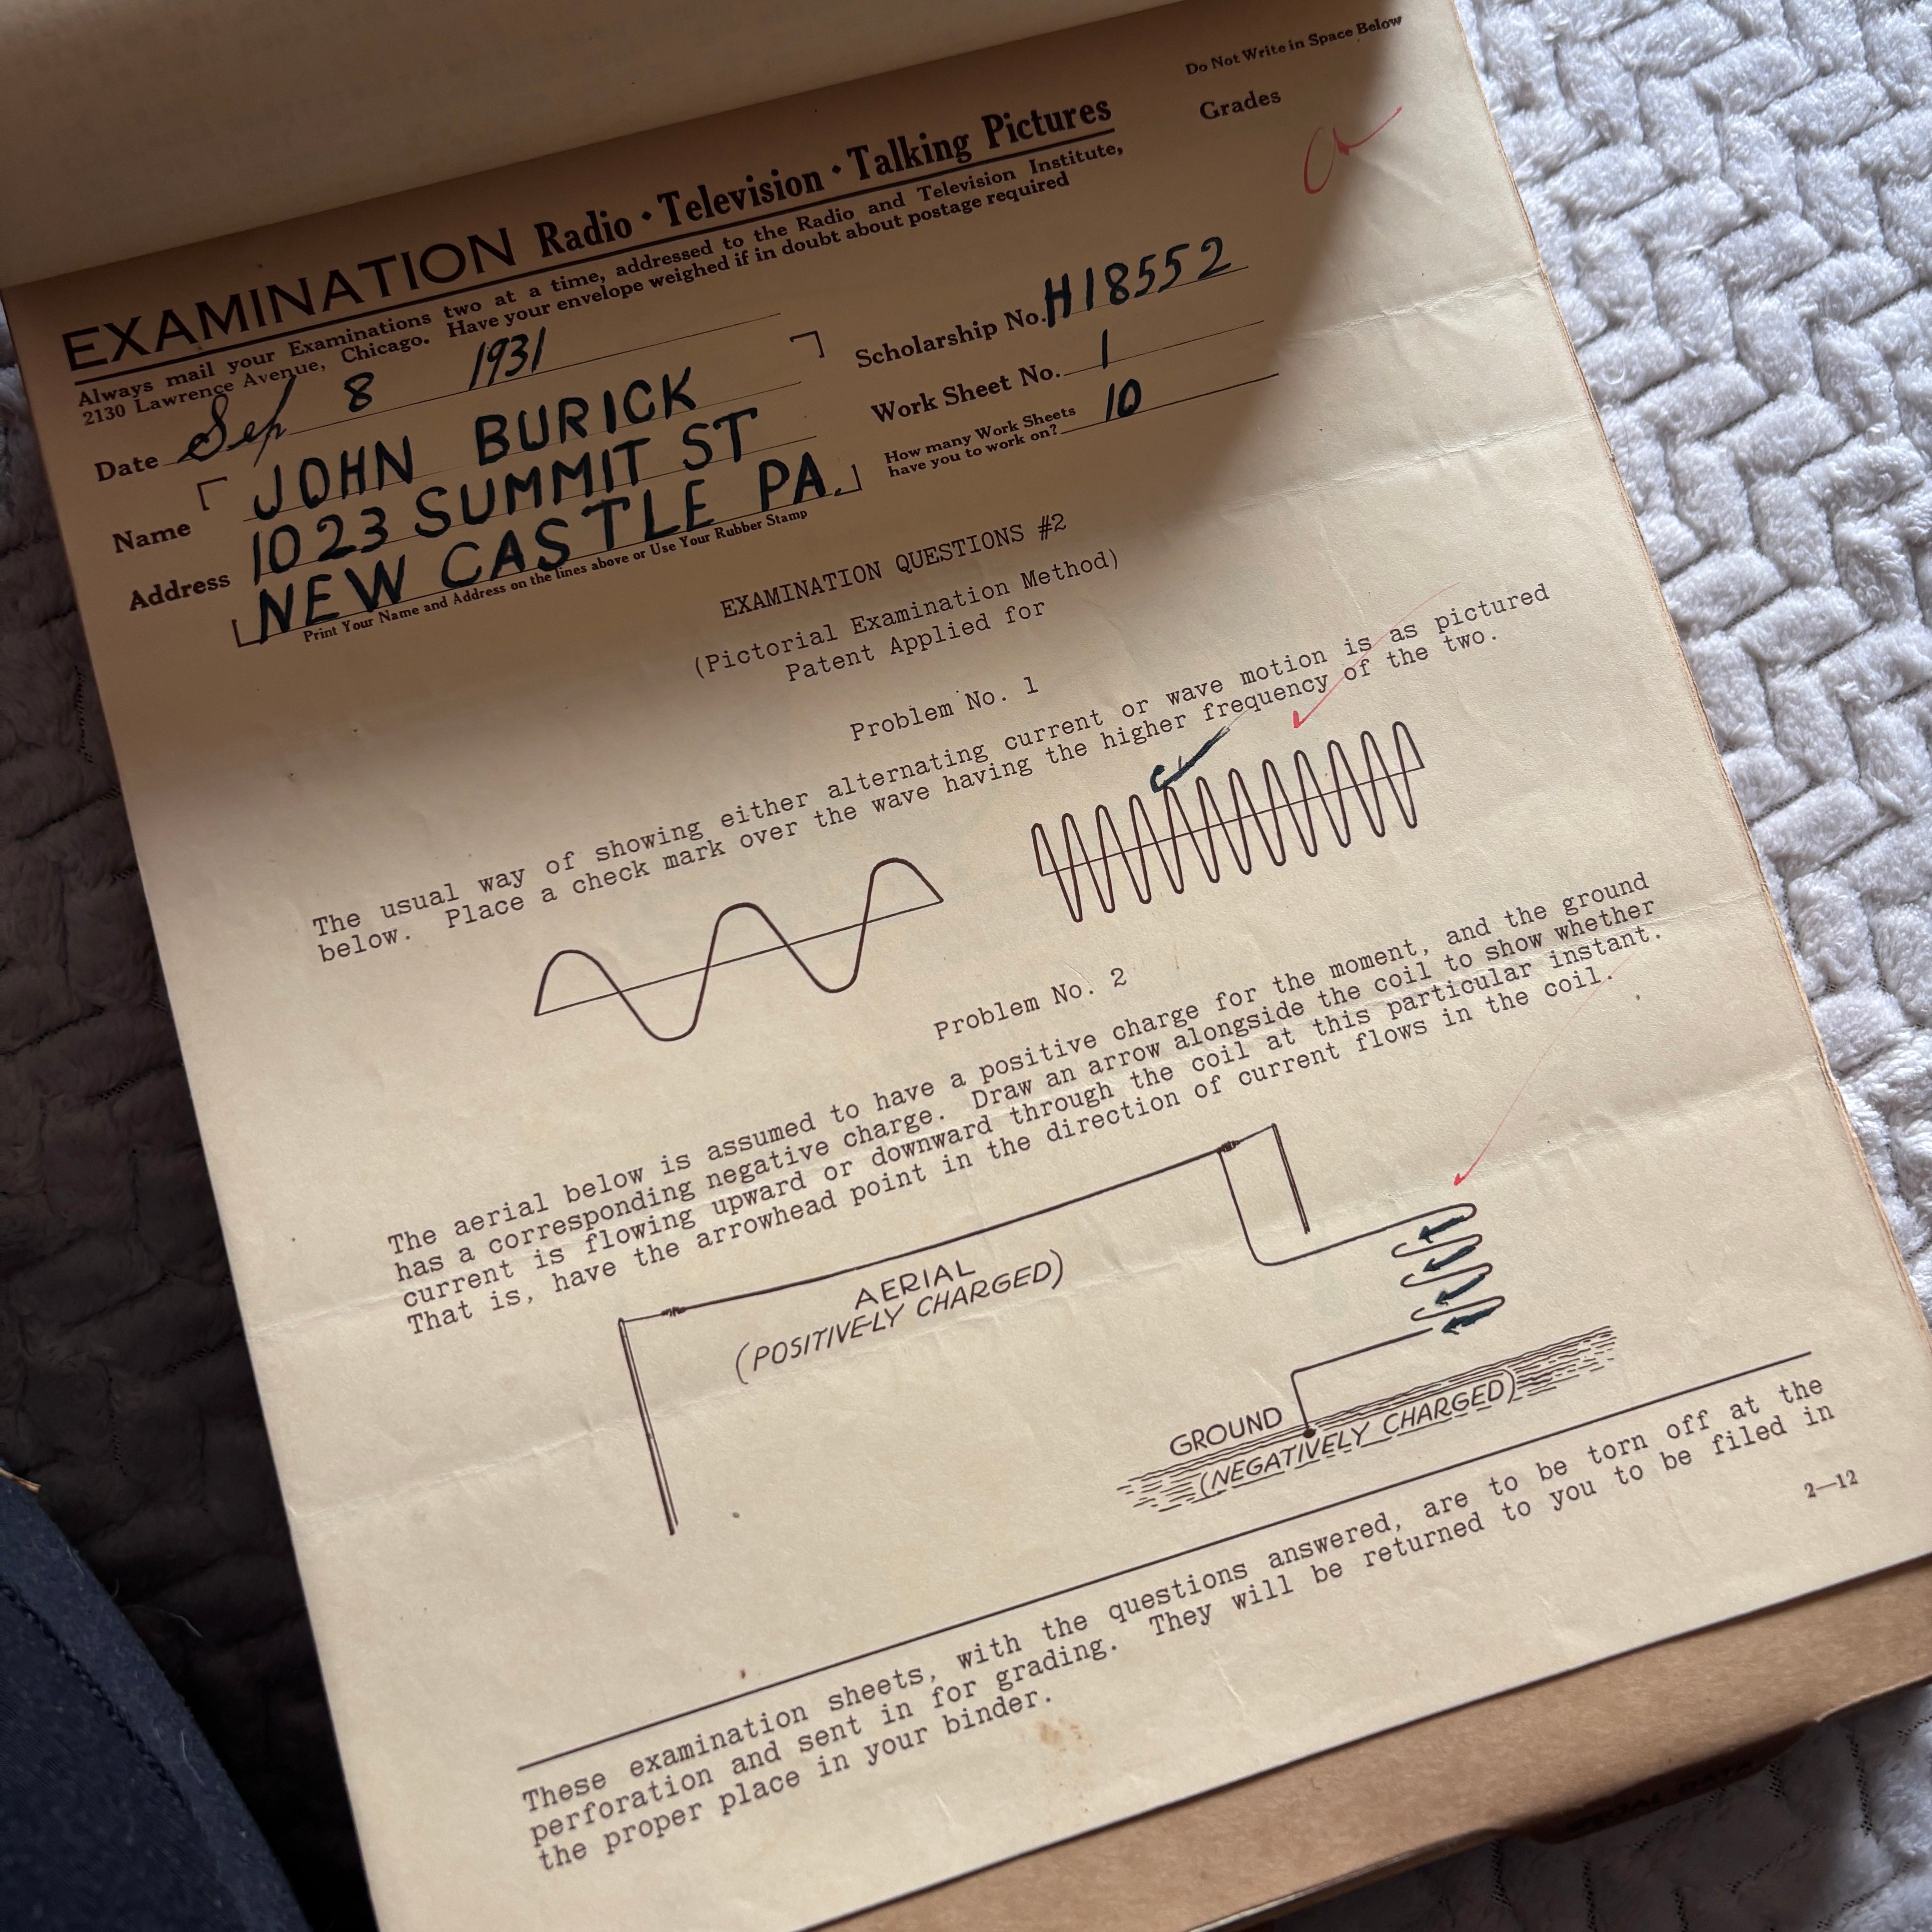 Do Not Write in Space Below
EXAMINATION Radio · Television · Talking Pictures
Grades
a
Always mail your Examinations two at a time, addressed to the Radio and Television Institute,
2130 Lawrence Avenue, Chicago. Have your envelope weighed if in doubt about postage required
Date Sep 8 1931
Scholarship No. H18552
Name JOHN BURICK
Work Sheet No. 1
Address 1023 SUMMIT ST
How many Work Sheets
have you to work on? 10
NEW CASTLE PA.
Print Your Name and Address on the lines above or Use Your Rubber Stamp
EXAMINATION QUESTIONS #2
(Pictorial Examination Method)
Patent Applied for
Problem No. 1
The usual way of showing either alternating current or wave motion is as pictured
below. Place a check mark over the wave having the higher frequency of the two.
Problem No. 2
The aerial below is assumed to have a positive charge for the moment, and the ground
has a corresponding negative charge. Draw an arrow alongside the coil to show whether
current is flowing upward or downward through the coil at this particular instant.
That is, have the arrowhead point in the direction of current flows in the coil.
AERIAL
(POSITIVELY CHARGED)
GROUND
(NEGATIVELY CHARGED)
These examination sheets, with the questions answered, are to be torn off at the
perforation and sent in for grading. They will be returned to you to be filed in
the proper place in your binder.
2—12